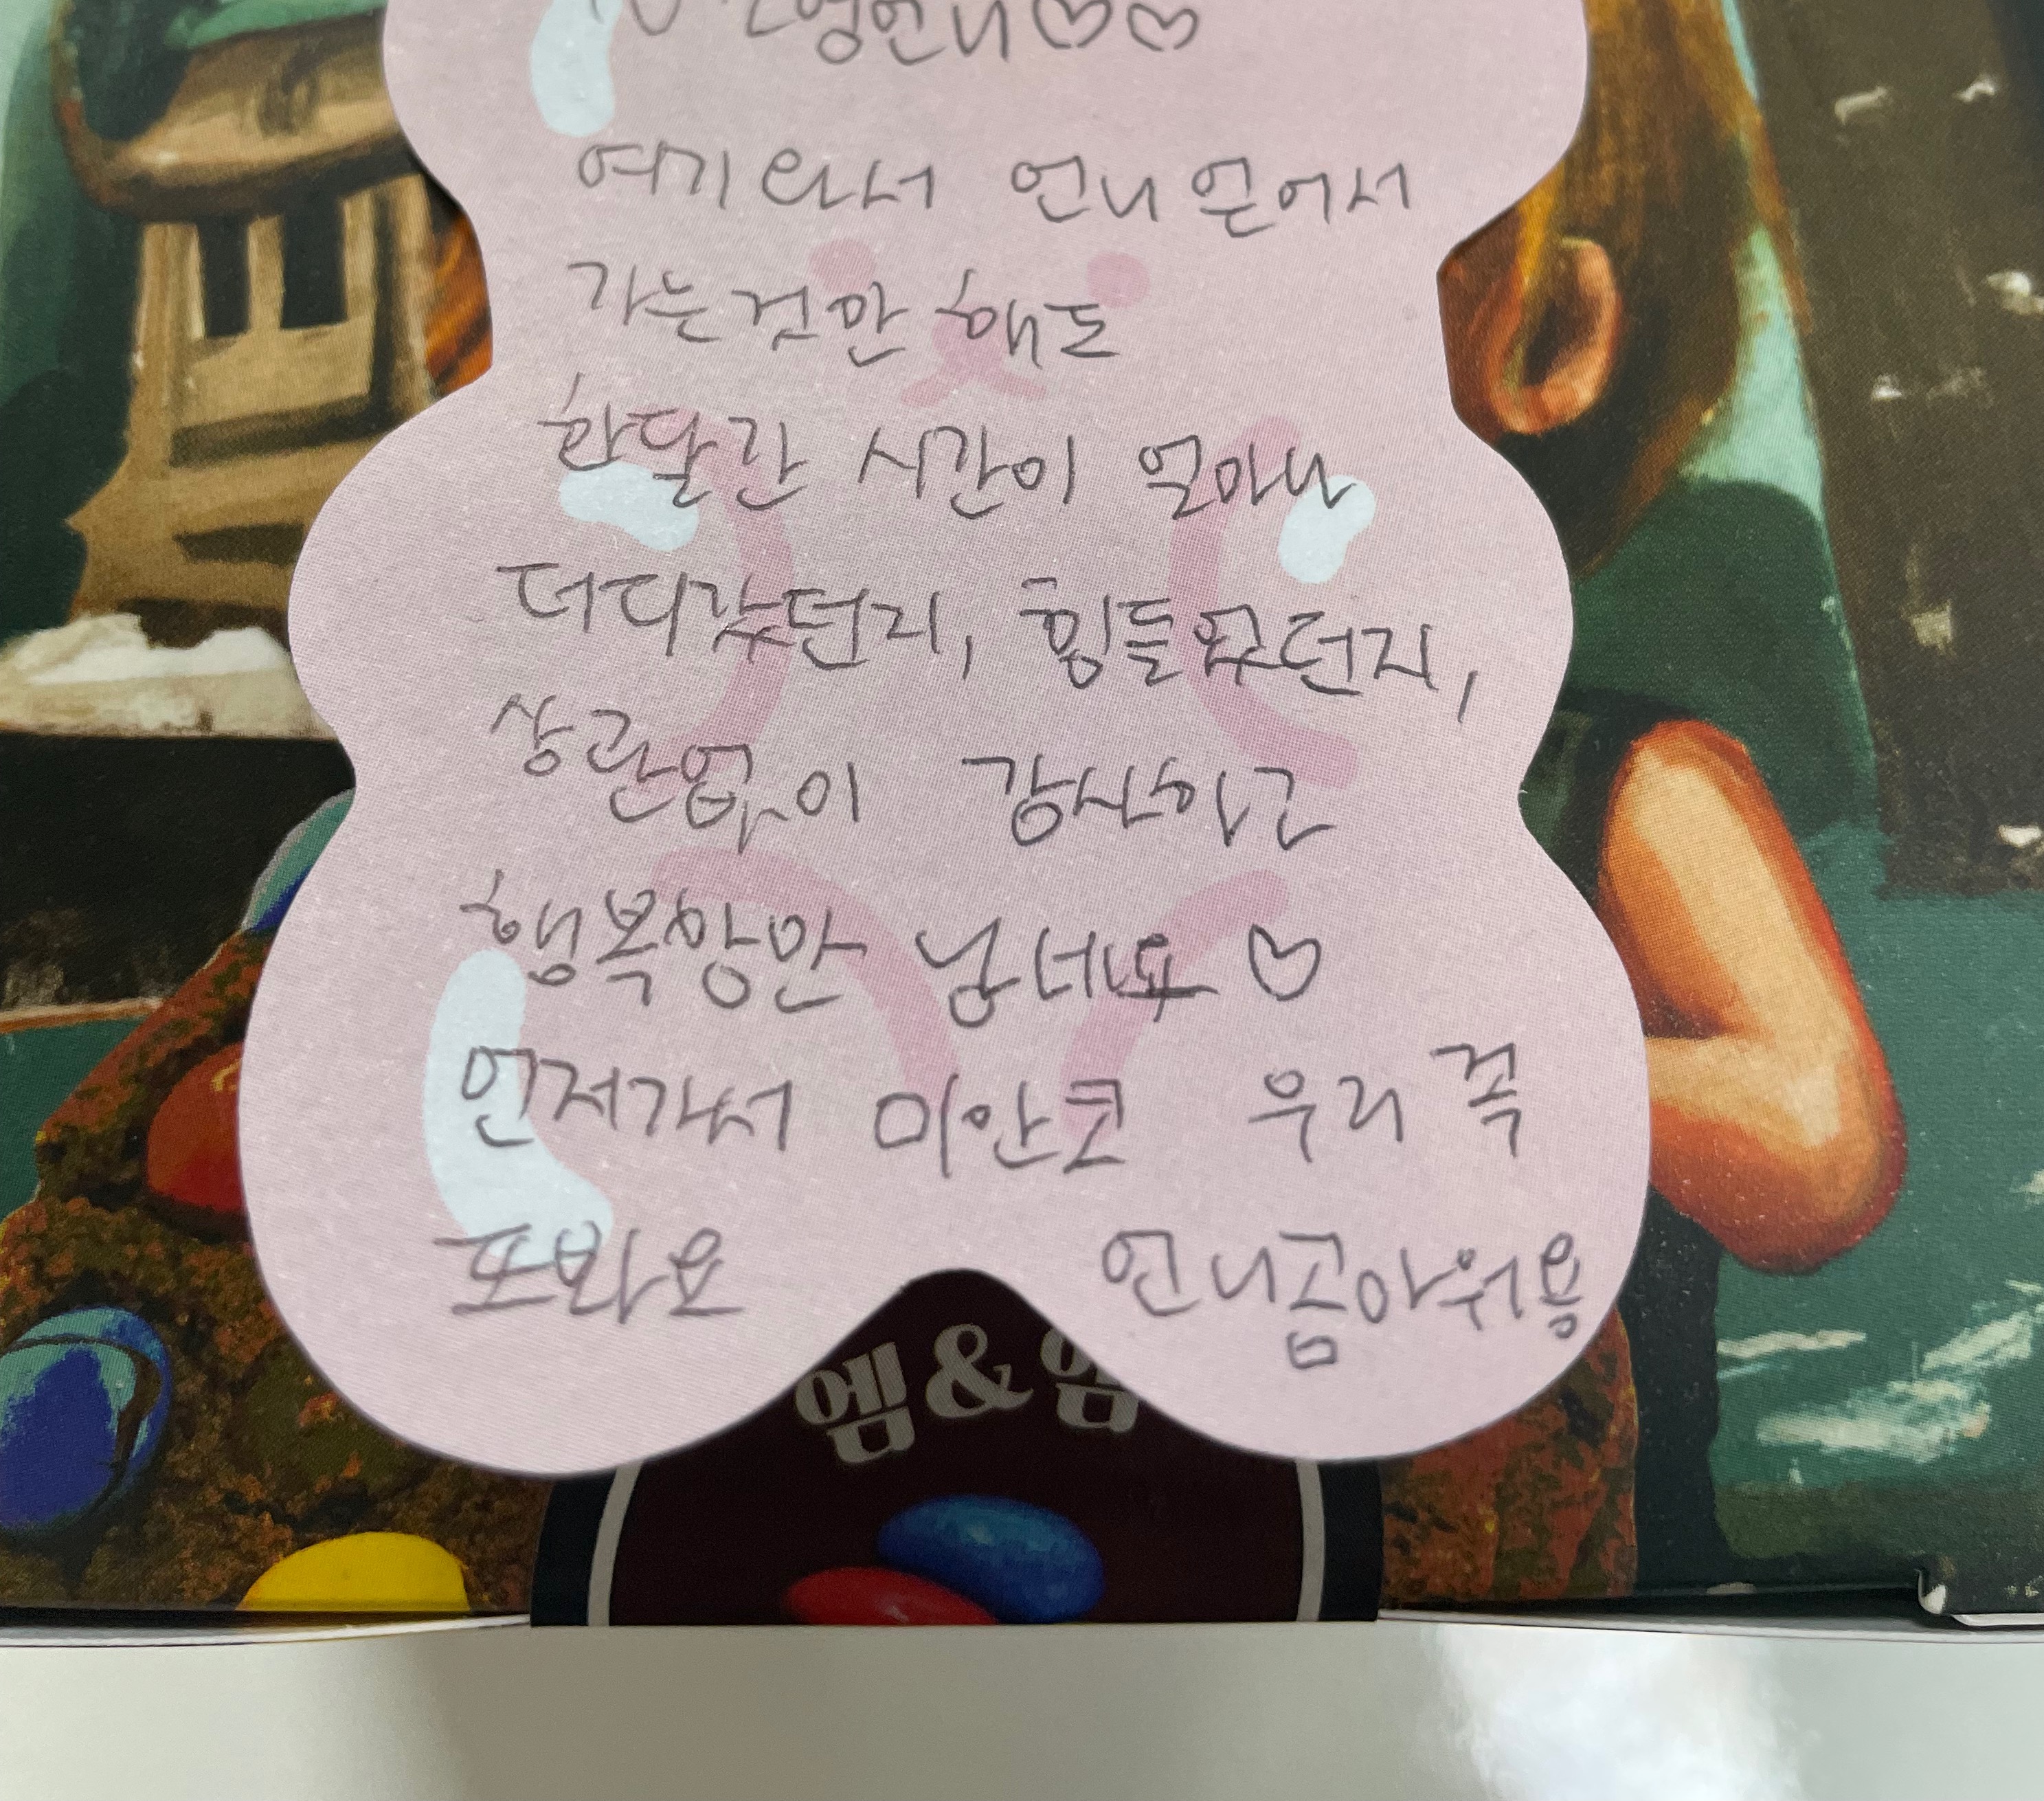 영언니♡♡
여기 와서 언니 얻어서
가는것만 해도
한달간 시간이 얼마나
더디갔던지, 힘들었던지,
상관없이 감사하고
행복함만 남네요♡
먼저가서 미안코 우리 꼭
또봐요 언니곰아워용
엠&엠